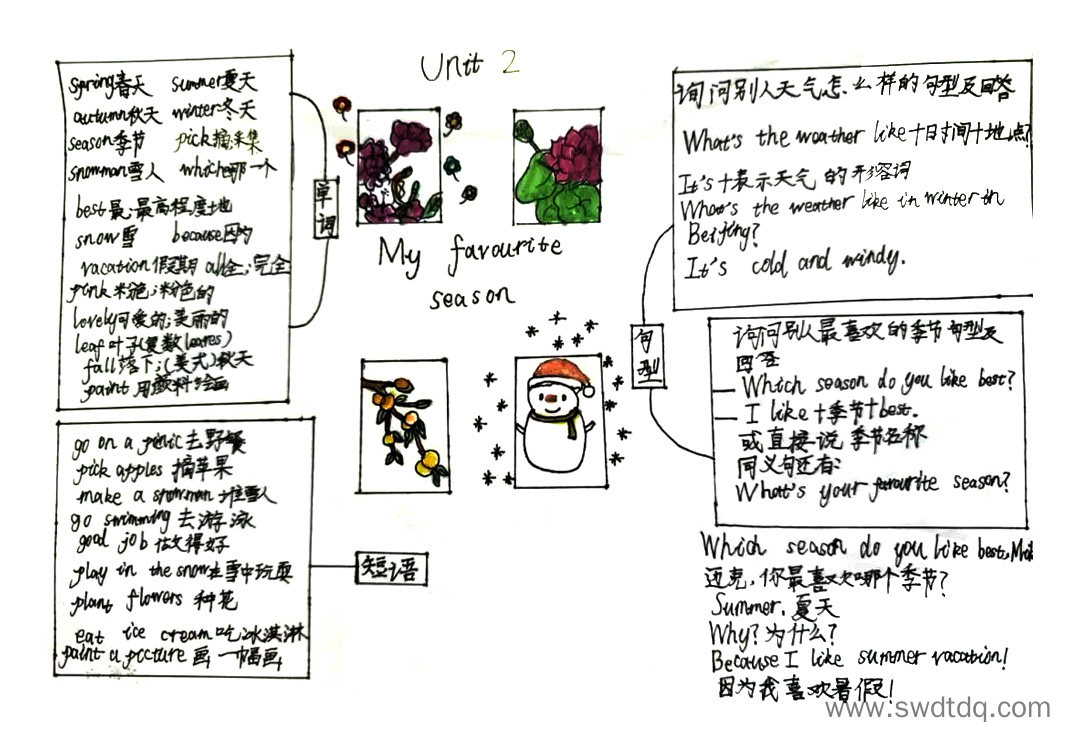 Unit 2
My favourite
season
单词
spring春天 summer夏天
autumn秋天 winter冬天
season季节 pick摘;采集
snowman雪人 which哪一个
best最;最高程度地
snow雪 because因为
vacation假期 all全;完全
pink粉色;粉色的
lovely可爱的;美丽的
leaf叶子(复数leaves)
fall落下;(美式)秋天
paint用颜料绘画
短语
go on a picnic去野餐
pick apples 摘苹果
make a snowman堆雪人
go swimming去游泳
good job做得好
play in the snow在雪中玩耍
plant flowers 种花
eat ice cream吃冰淇淋
paint a picture画一幅画
句型
询问别人天气怎么样的句型及回答
What's the weather like十日时间十地点?
It's十表示天气的形容词
What's the weather like in winter in
Beijing?
It's cold and windy.
询问别人最喜欢的季节句型及
回答
— Which season do you like best?
— I like十季节十best.
或直接说季节名称
同义句还有:
What's your favourite season?
Which season do you like best,
迈克,你最喜欢哪个季节?
Summer.夏天
Why?为什么?
Because I like summer vacation!
因为我喜欢暑假!
www.swdtdq.com